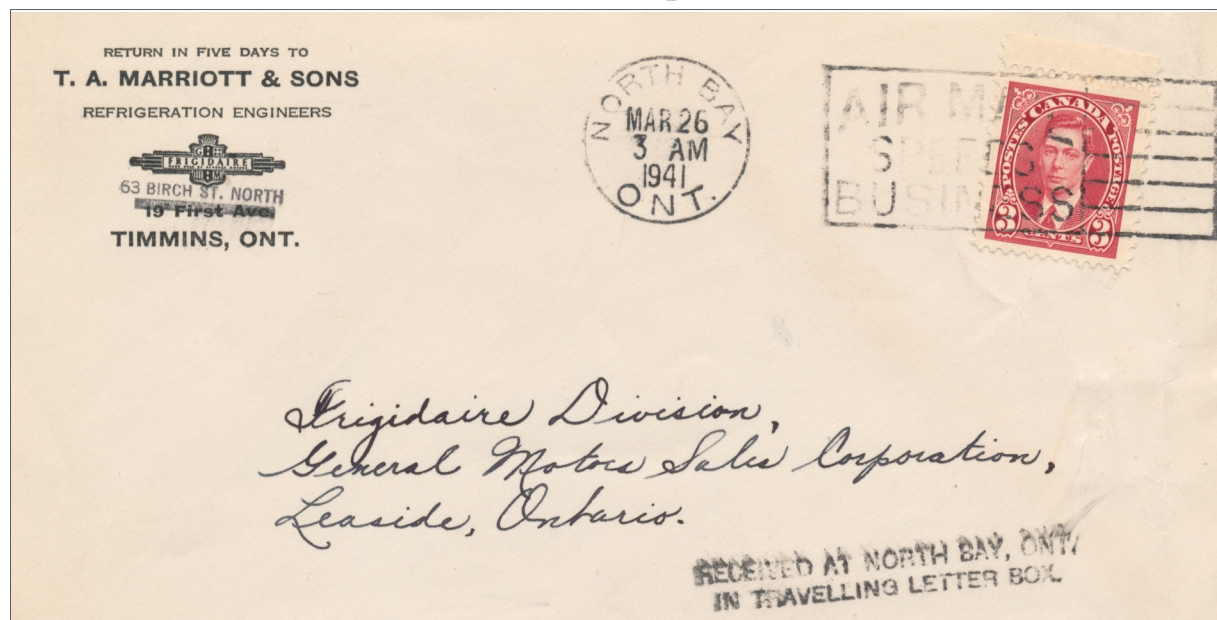 RETURN IN FIVE DAYS TO
T. A. MARRIOTT & SONS
REFRIGERATION ENGINEERS
FRIGIDAIRE
63 BIRCH ST. NORTH
19 First Ave.
TIMMINS, ONT.
NORTH BAY
MAR 26
3 AM
1941
ONT.
AIR MA
SPEEDS
BUSINESS
POSTES CANADA POSTAGE
3 CENTS 3
Frigidaire Division,
General Motors Sales Corporation,
Leaside, Ontario.
RECEIVED AT NORTH BAY, ONT.
IN TRAVELLING LETTER BOX.